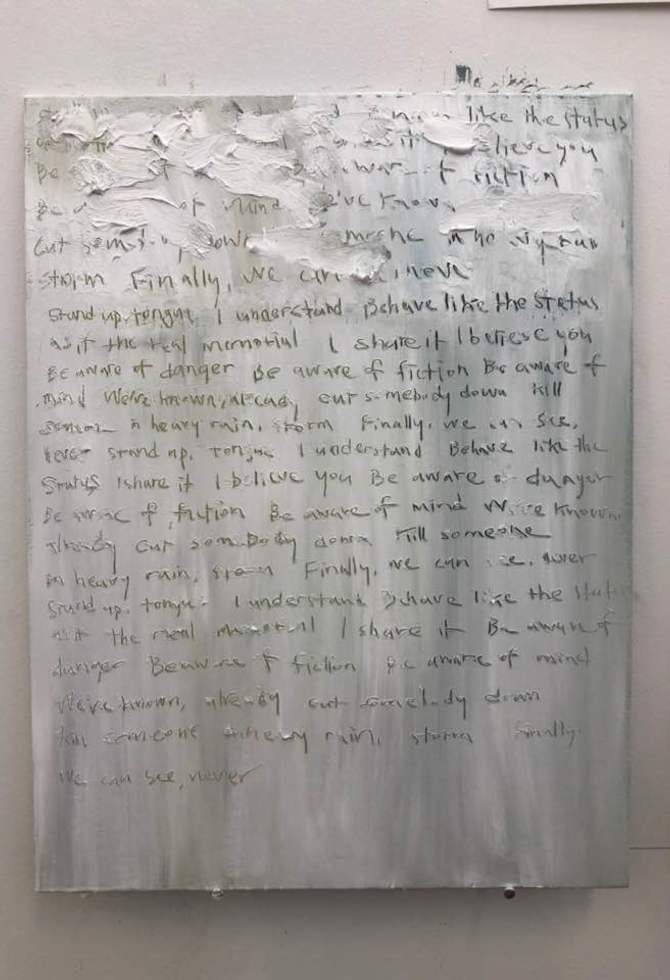 like the status
it believe you
fiction
of mind We've known,
cut down someone in heavy rain
storm Finally, we can never
Stand up, tongue, I understand Behave like the status
as if the real memorial I share it I believe you
Be aware of danger Be aware of fiction Be aware of
mind We've known, already cut somebody down Kill
someone in heavy rain, storm Finally, we can see,
never stand up, tongue I understand Behave like the
status I share it I believe you Be aware of danger
Be aware of fiction Be aware of mind We've known,
already cut somebody down Kill someone
in heavy rain, storm Finally, we can see, never
Stand up, tongue I understand Behave like the status
as if the real memorial I share it Be aware of
danger Be aware of fiction Be aware of mind
We've known, already cut somebody down
kill someone in heavy rain, storm Finally,
We can see, never